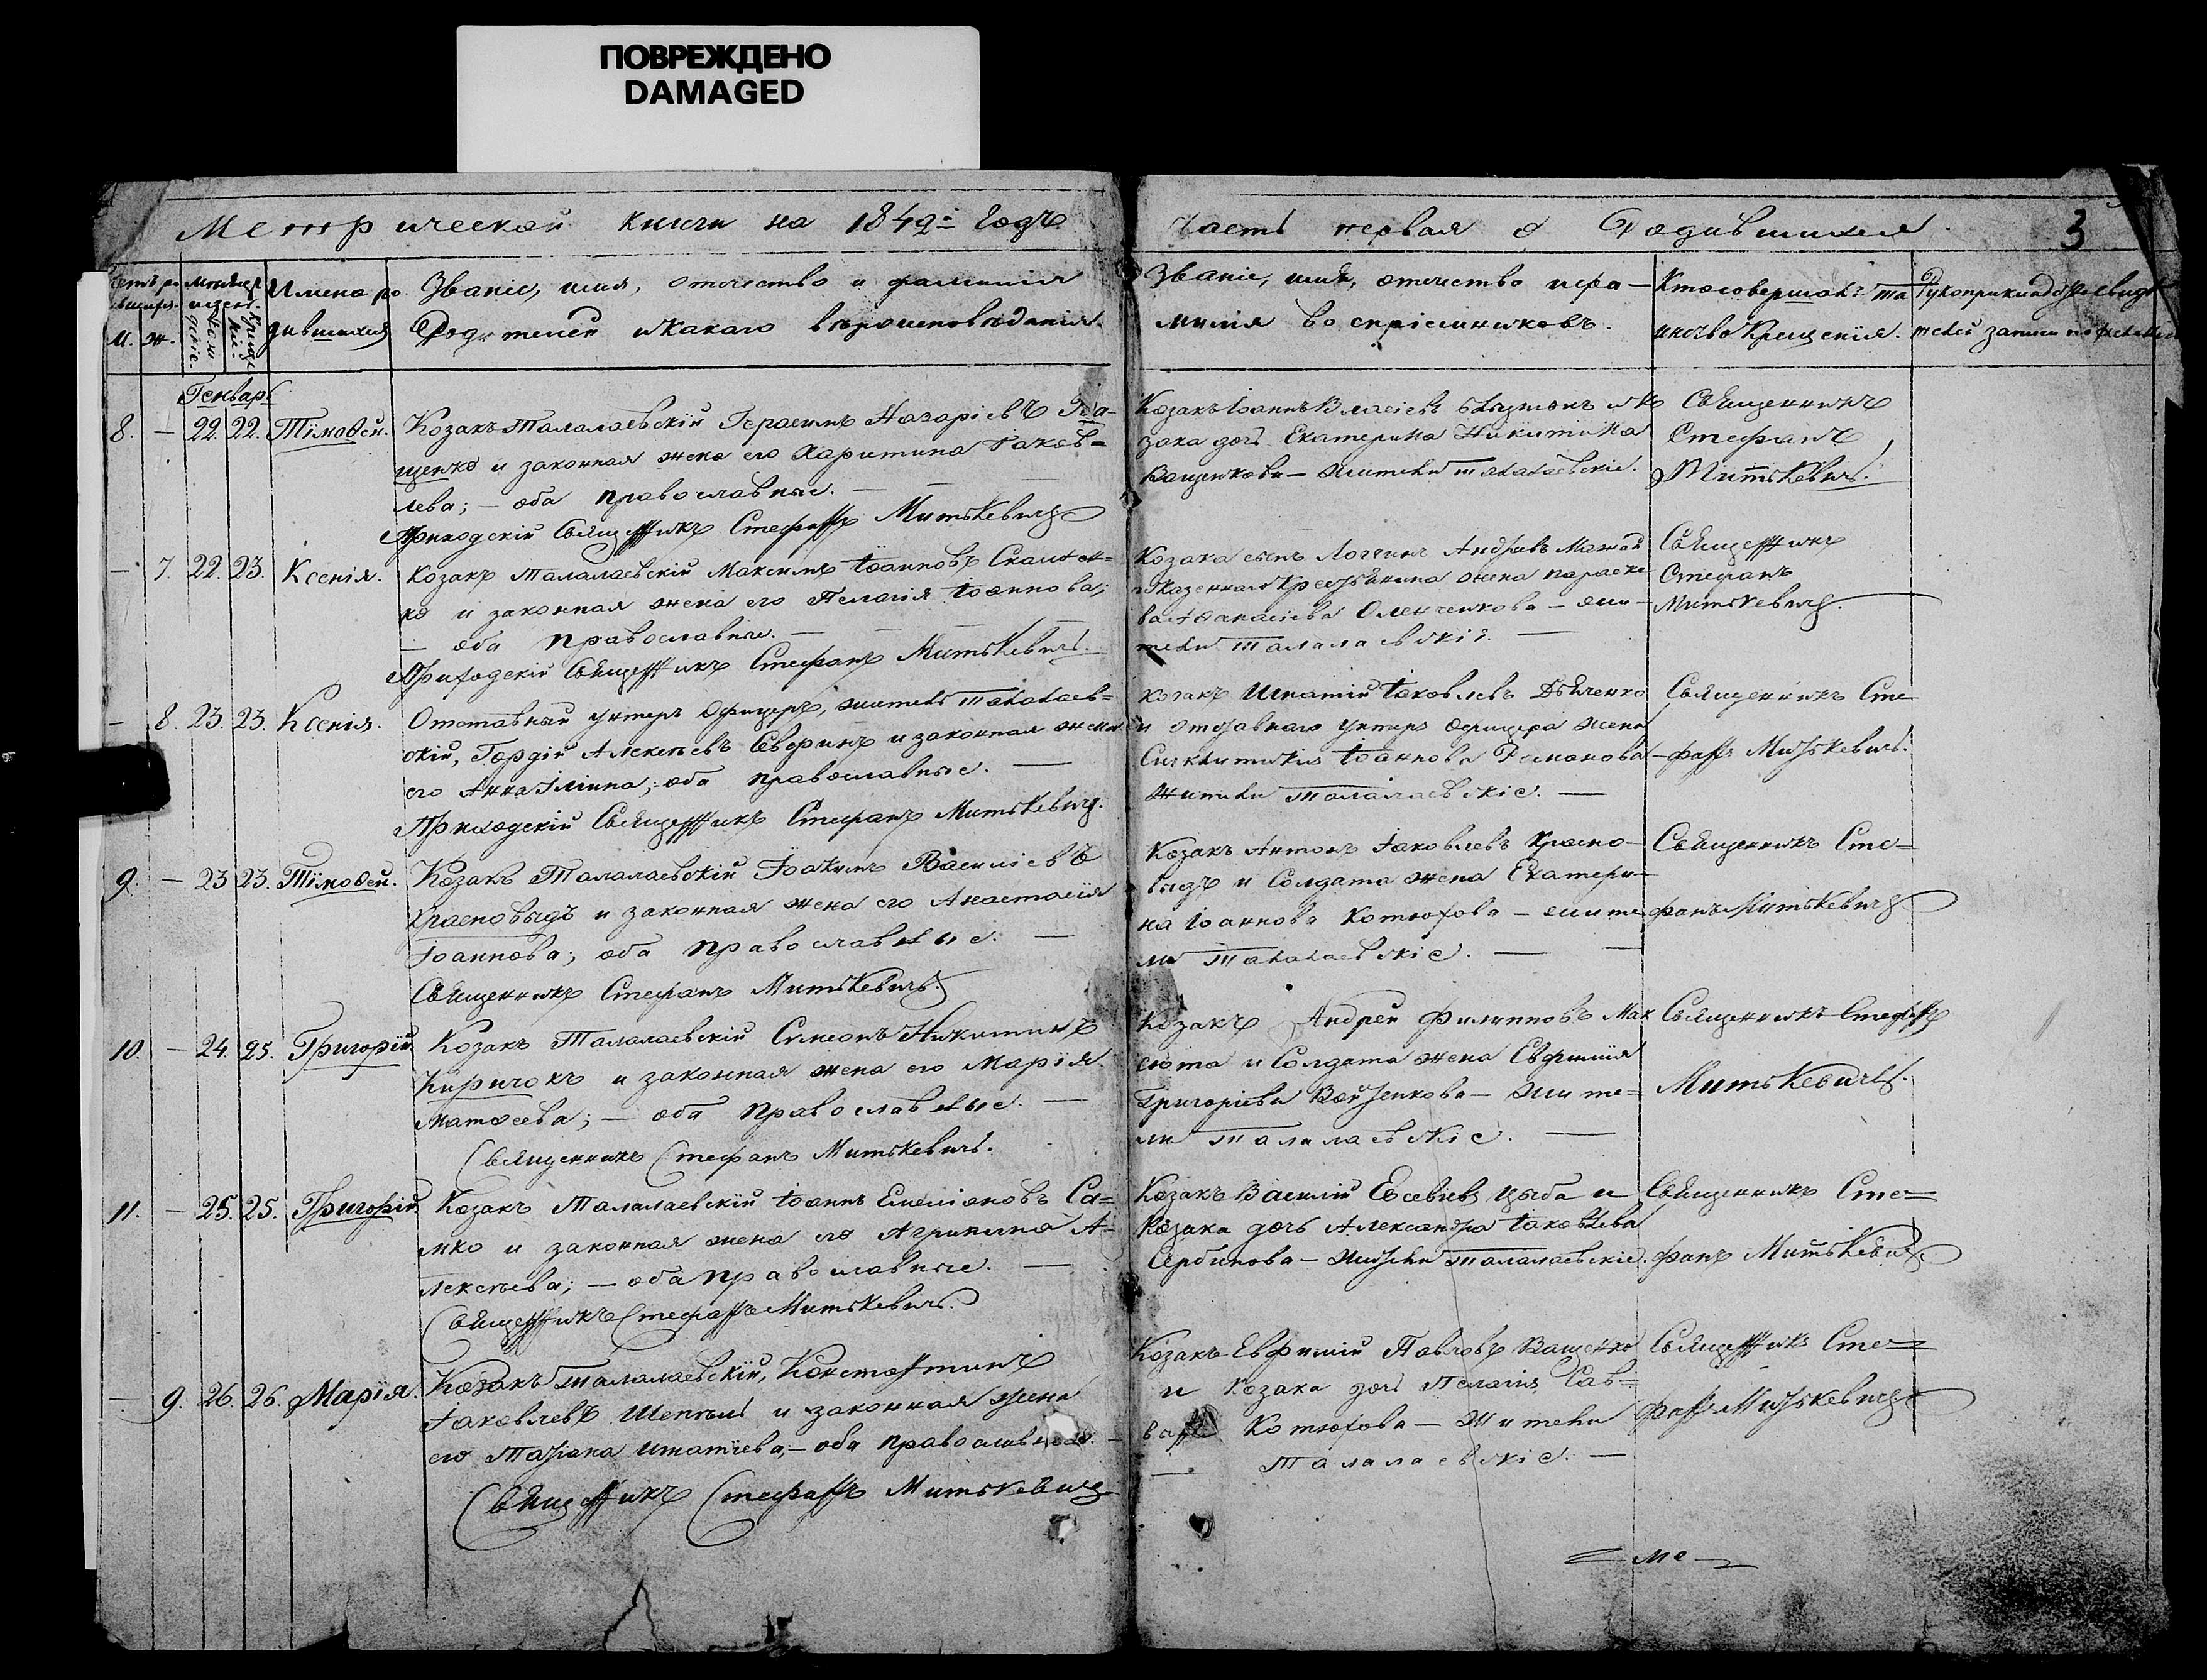 ПОВРЕЖДЕНО
DAMAGED
Метрической книги на 1842й годъ
часть первая о Родившихся.
3
М. Ж.
Имена ро
дившихся
Званіе, имя, отечество и фамилія
Родителей и какаго вѣроисповѣданія.
Званіе, имя, отечество и фа-
милія воспріемниковъ.
Кто совершалъ та
инство Крещенія.
Генварь
8. — 22. 22. Тїмоѳей.
Козакъ Талалаевскій Герасимъ Назаріевъ
щенко и законная жена его Харитина Іаков=
лева; — оба православные. —
Приходскій Священникъ Стефанъ Митькевичъ
Козакъ Іоаннъ Власіевъ и ко
зака дочь Екатерина Никитина
Ващенкова — жители талалаевскіе.
Священникъ
Стефанъ
Митькевичъ.
— 7. 22. 23. Ксенія.
Козакъ талалаевскій Максимъ Іоанновъ
ко и законная жена его Пелагія Іоаннова;
— оба православные. —
Приходскій Священникъ Стефанъ Митькевичъ.
Козака сынъ Логгинъ Андреевъ
и казеннаго крестьянина жена параске
ва Аѳанасіева — жи-
тели талалаевскіе. —
Священникъ
Стефанъ
Митькевичъ.
— 8. 23. 23. Ксенія.
Отставный унтеръ офицеръ, житель талалаев=
скій, Гордій Алексѣевъ Северинъ и законная жена
его Анна Іліина; оба православные. —
Приходскій Священникъ Стефанъ Митькевичъ.
козакъ Игнатій Іаковлевъ
и отставнаго унтеръ офицера жена
Сигклитикія Іоаннова Романова
жители талалаевскіе. —
Священникъ Сте
фанъ Митькевичъ.
9. — 23 23. Тїмоѳей.
Козакъ Талалаевскій Іоакимъ Василіевъ
Красновыдъ и законная жена его Анастасія
Іоаннова; оба православные. —
Священникъ Стефанъ Митькевичъ.
Козакъ Антонъ Іаковлевъ Красно-
выдъ и Солдата жена Екатери-
на Іоаннова Котюхова — жите
ли талалаевскіе. —
Священникъ Сте=
фанъ Митькевичъ
10. — 24. 25. Григорїй.
Козакъ Талалаевскій Симеонъ Никитинъ
Киричокъ и законная жена его Марія
матѳеева; — оба православные. —
Священникъ Стефанъ Митькевичъ.
Козакъ Андрей Филипповъ Мак
сюта и Солдата жена Евфимія
Григоріева Войтенкова — жите=
ли талалаевскіе. —
Священникъ Стефанъ
Митькевичъ.
11. — 25. 25. Григорїй.
Козакъ Талалаевскій Іоаннъ Емеліановъ Са=
мко и законная жена его Агрипина А-
лексѣева; — оба православные. —
Священникъ Стефанъ Митькевичъ.
Козакъ Василій Евсевіевъ Цыба и
Козака дочь Александра Іаковлева
Сербинова — жители талалаевскіе.
Священникъ Сте=
фанъ Митькевичъ
— 9. 26. 26. Марїя.
Козакъ талалаевскій, Константинъ
Іаковлевъ Шепель и законная жена
его Татіана Игнатіева, — оба православные. —
Священникъ Стефанъ Митькевичъ
Козакъ Евфимій Павловъ Ващенко
и Козака дочь Пелагія Сав=
Котюхова — жители
— талалаевскіе. —
Священникъ Сте=
фанъ Митькевичъ